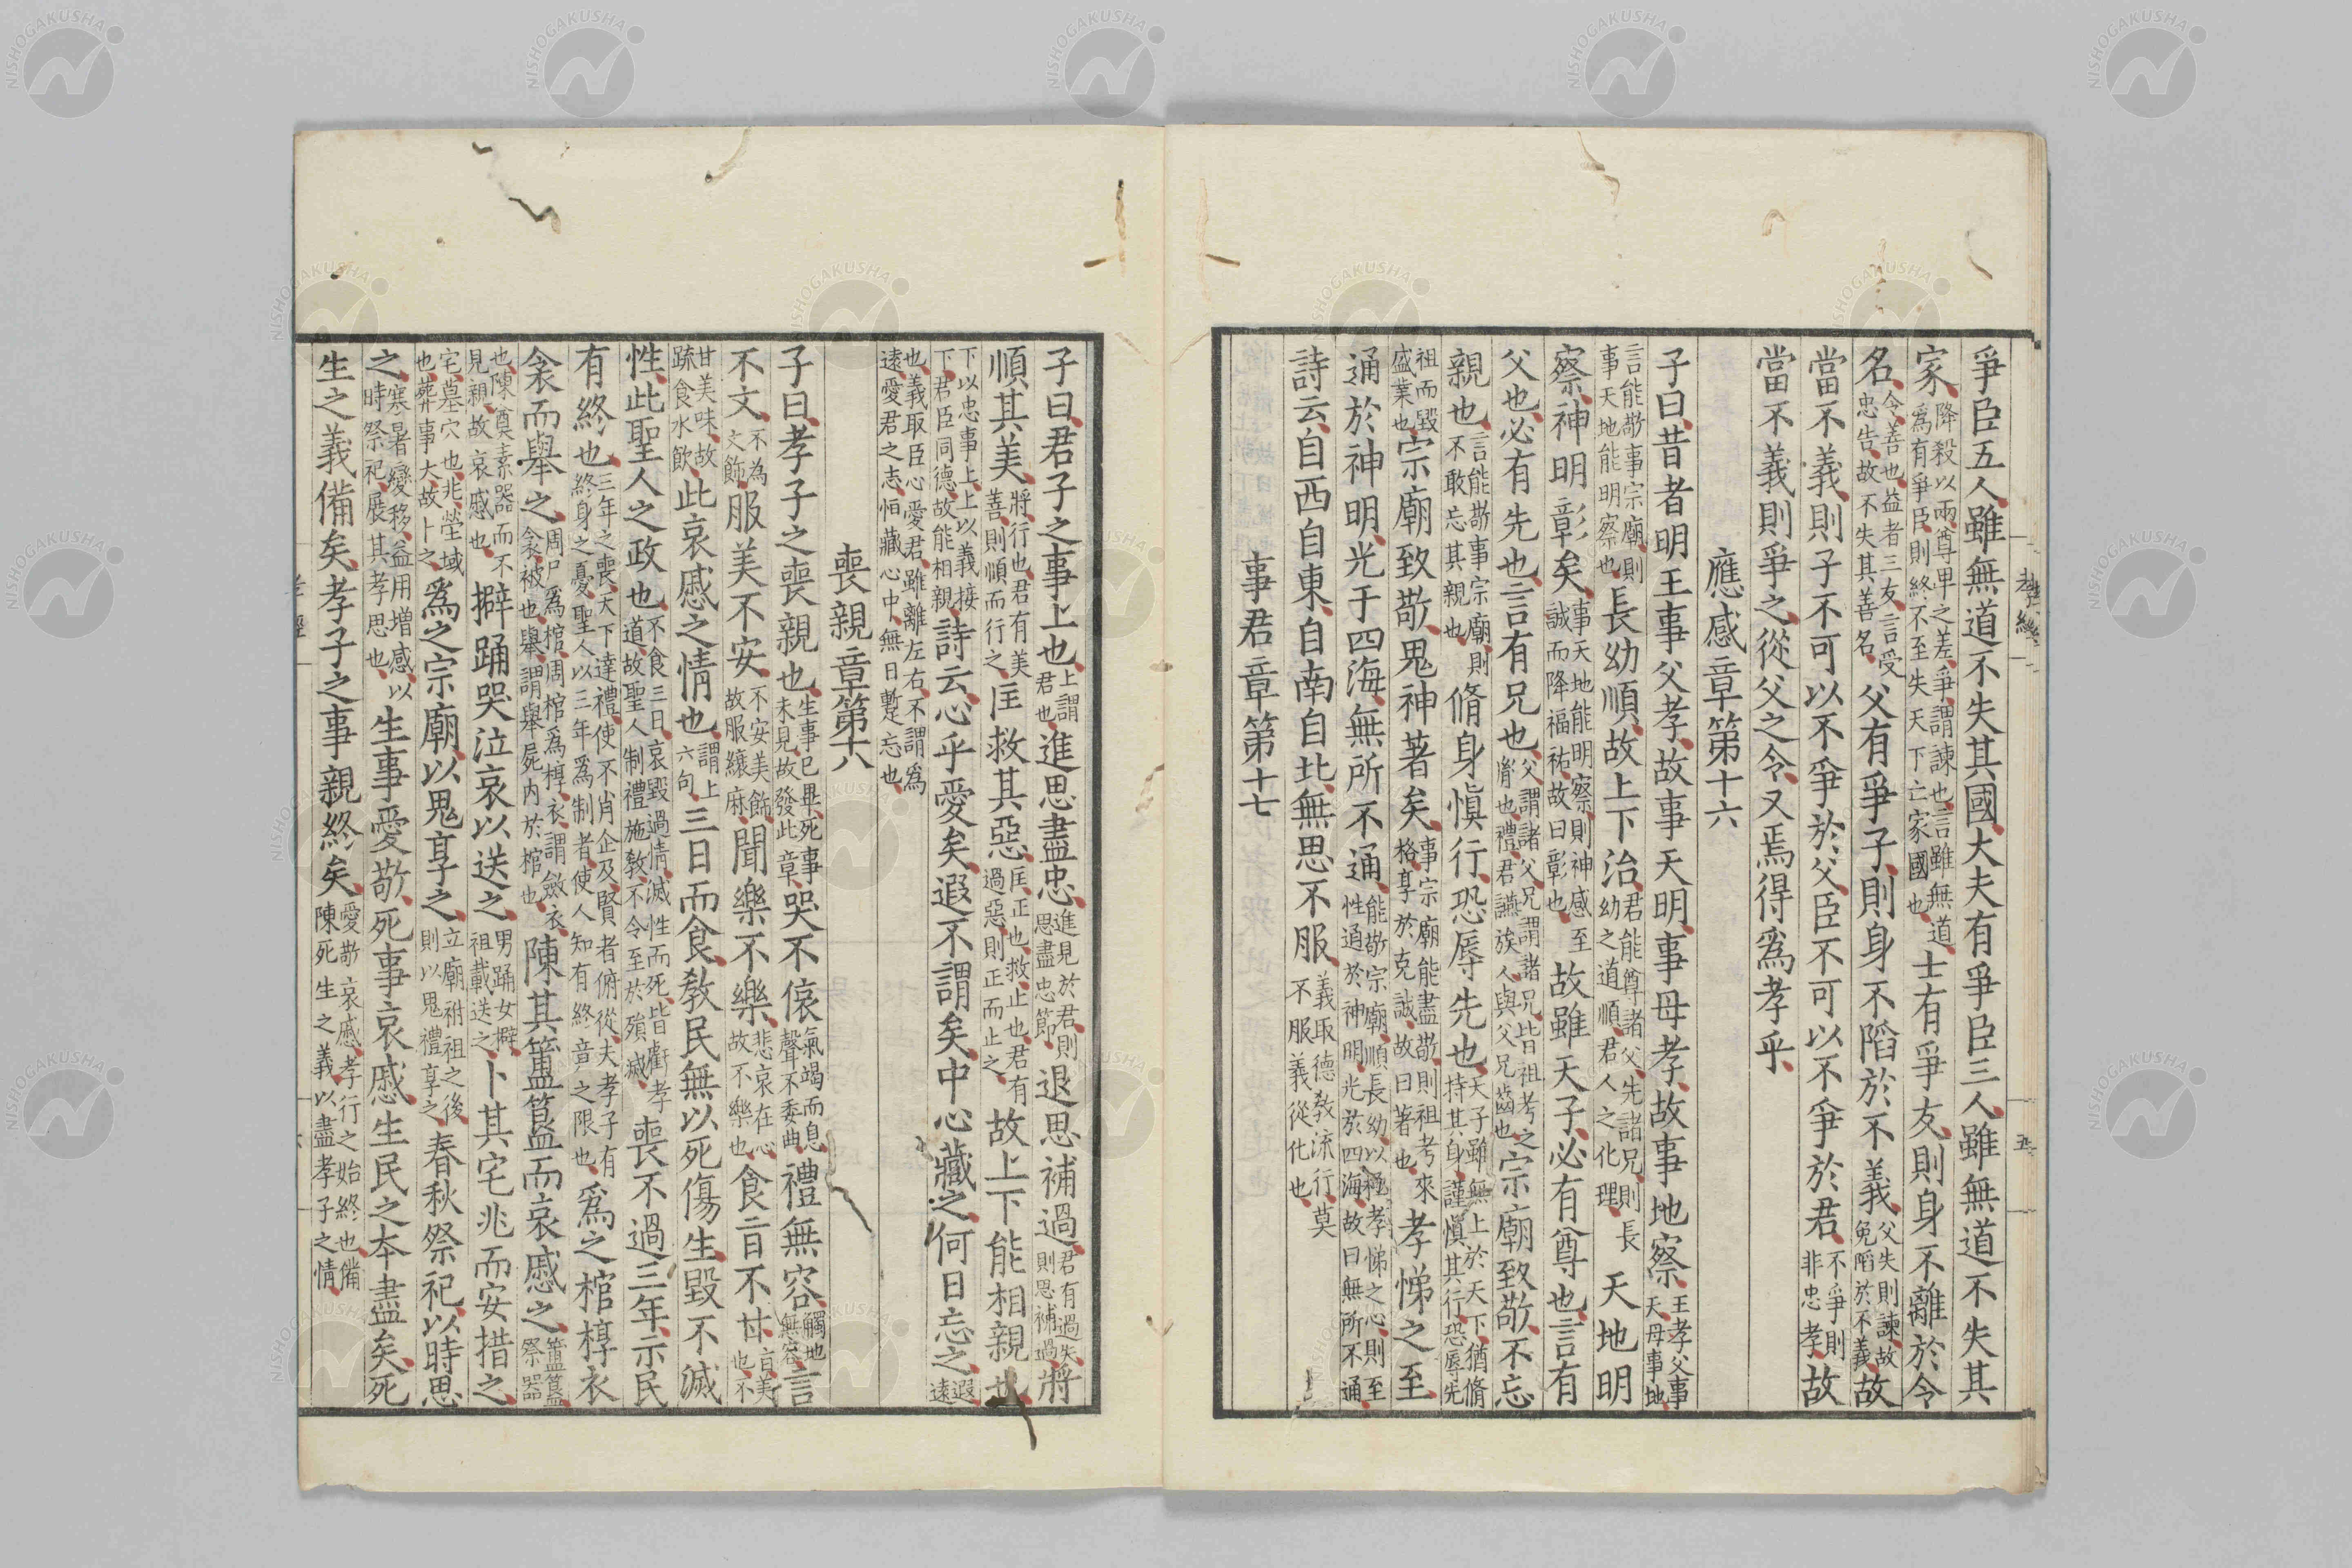 爭臣五人雖無道不失其國大夫有爭臣三人雖無道不失其
家降殺以兩尊卑之差爭謂諫也言雖無道爲有爭臣則終不至失天下亡家國也士有爭友則身不離於令
名令善也益者三友言受忠告故不失其善名父有爭子則身不陷於不義父失則諫故免陷於不義故
當不義則子不可以不爭於父臣不可以不爭於君不爭則非忠孝故
當不義則爭之從父之令又焉得爲孝乎
應感章第十六
子曰昔者明王事父孝故事天明事母孝故事地察王孝父事天母事地
言能敬事宗廟則事天地能明察也長幼順故上下治君能尊諸父先諸兄則長幼之道順君人之化理天地明
察神明彰矣事天地能明察則神感至誠而降福祐故曰彰也故雖天子必有尊也言有
父也必有先也言有兄也父謂諸父兄謂諸兄皆祖考之胤也禮君讌族人與父兄齒也宗廟致敬不忘
親也言能敬事宗廟則不敢忘其親也脩身愼行恐辱先也天子雖無上於天下猶脩持其身謹愼其行恐辱先
祖而毀盛業也宗廟致敬鬼神著矣事宗廟能盡敬則祖考來格享於克誠故曰著也孝悌之至
通於神明光于四海無所不通能敬宗廟順長幼以極孝悌之心則至性通於神明光於四海故曰無所不通
詩云自西自東自南自北無思不服義取德教流行莫不服義從化也
事君章第十七
子曰君子之事上也上謂君也進思盡忠進見於君則思盡忠節退思補過君有過失則思補過將
順其美將行也君有美善則順而行之匡救其惡匡正也救止也君有過惡則正而止之故上下能相親也
下以忠事上上以義接下君臣同德故能相親詩云心乎愛矣遐不謂矣中心藏之何日忘之遐遠
也義取臣心愛君雖離左右不謂爲遠愛君之志恒藏心中無日暫忘也
喪親章第十八
子曰孝子之喪親也生事已畢死事未見故發此章哭不偯氣竭而息聲不委曲禮無容觸地無容言
不文不為文飾服美不安不安美飾故服縗麻聞樂不樂悲哀在心故不樂也食旨不甘旨美也不
甘美味故疏食水飲此哀慼之情也謂上六句三日而食教民無以死傷生毀不滅
性此聖人之政也不食三日哀毀過情滅性而死皆虧孝道故聖人制禮施教不令至於殞滅喪不過三年示民
有終也三年之喪天下達禮使不肖企及賢者俯從夫孝子有終身之憂聖人以三年爲制者使人知有終竟之限也爲之棺椁衣
衾而舉之周尸爲棺周棺爲椁衣謂斂衣衾被也舉謂舉屍內於棺也陳其簠簋而哀慼之簠簋祭器
也陳奠素器而不見親故哀慼也擗踊哭泣哀以送之男踊女擗祖載送之卜其宅兆而安措之
宅墓穴也兆塋域也葬事大故卜之爲之宗廟以鬼享之立廟祔祖之後則以鬼禮享之春秋祭祀以時思
之寒暑變移益用增感以時祭祀展其孝思也生事愛敬死事哀慼生民之夲盡矣死
生之義備矣孝子之事親終矣愛敬哀慼孝行之始終也備陳死生之義以盡孝子之情
NISHOGAKUSHA